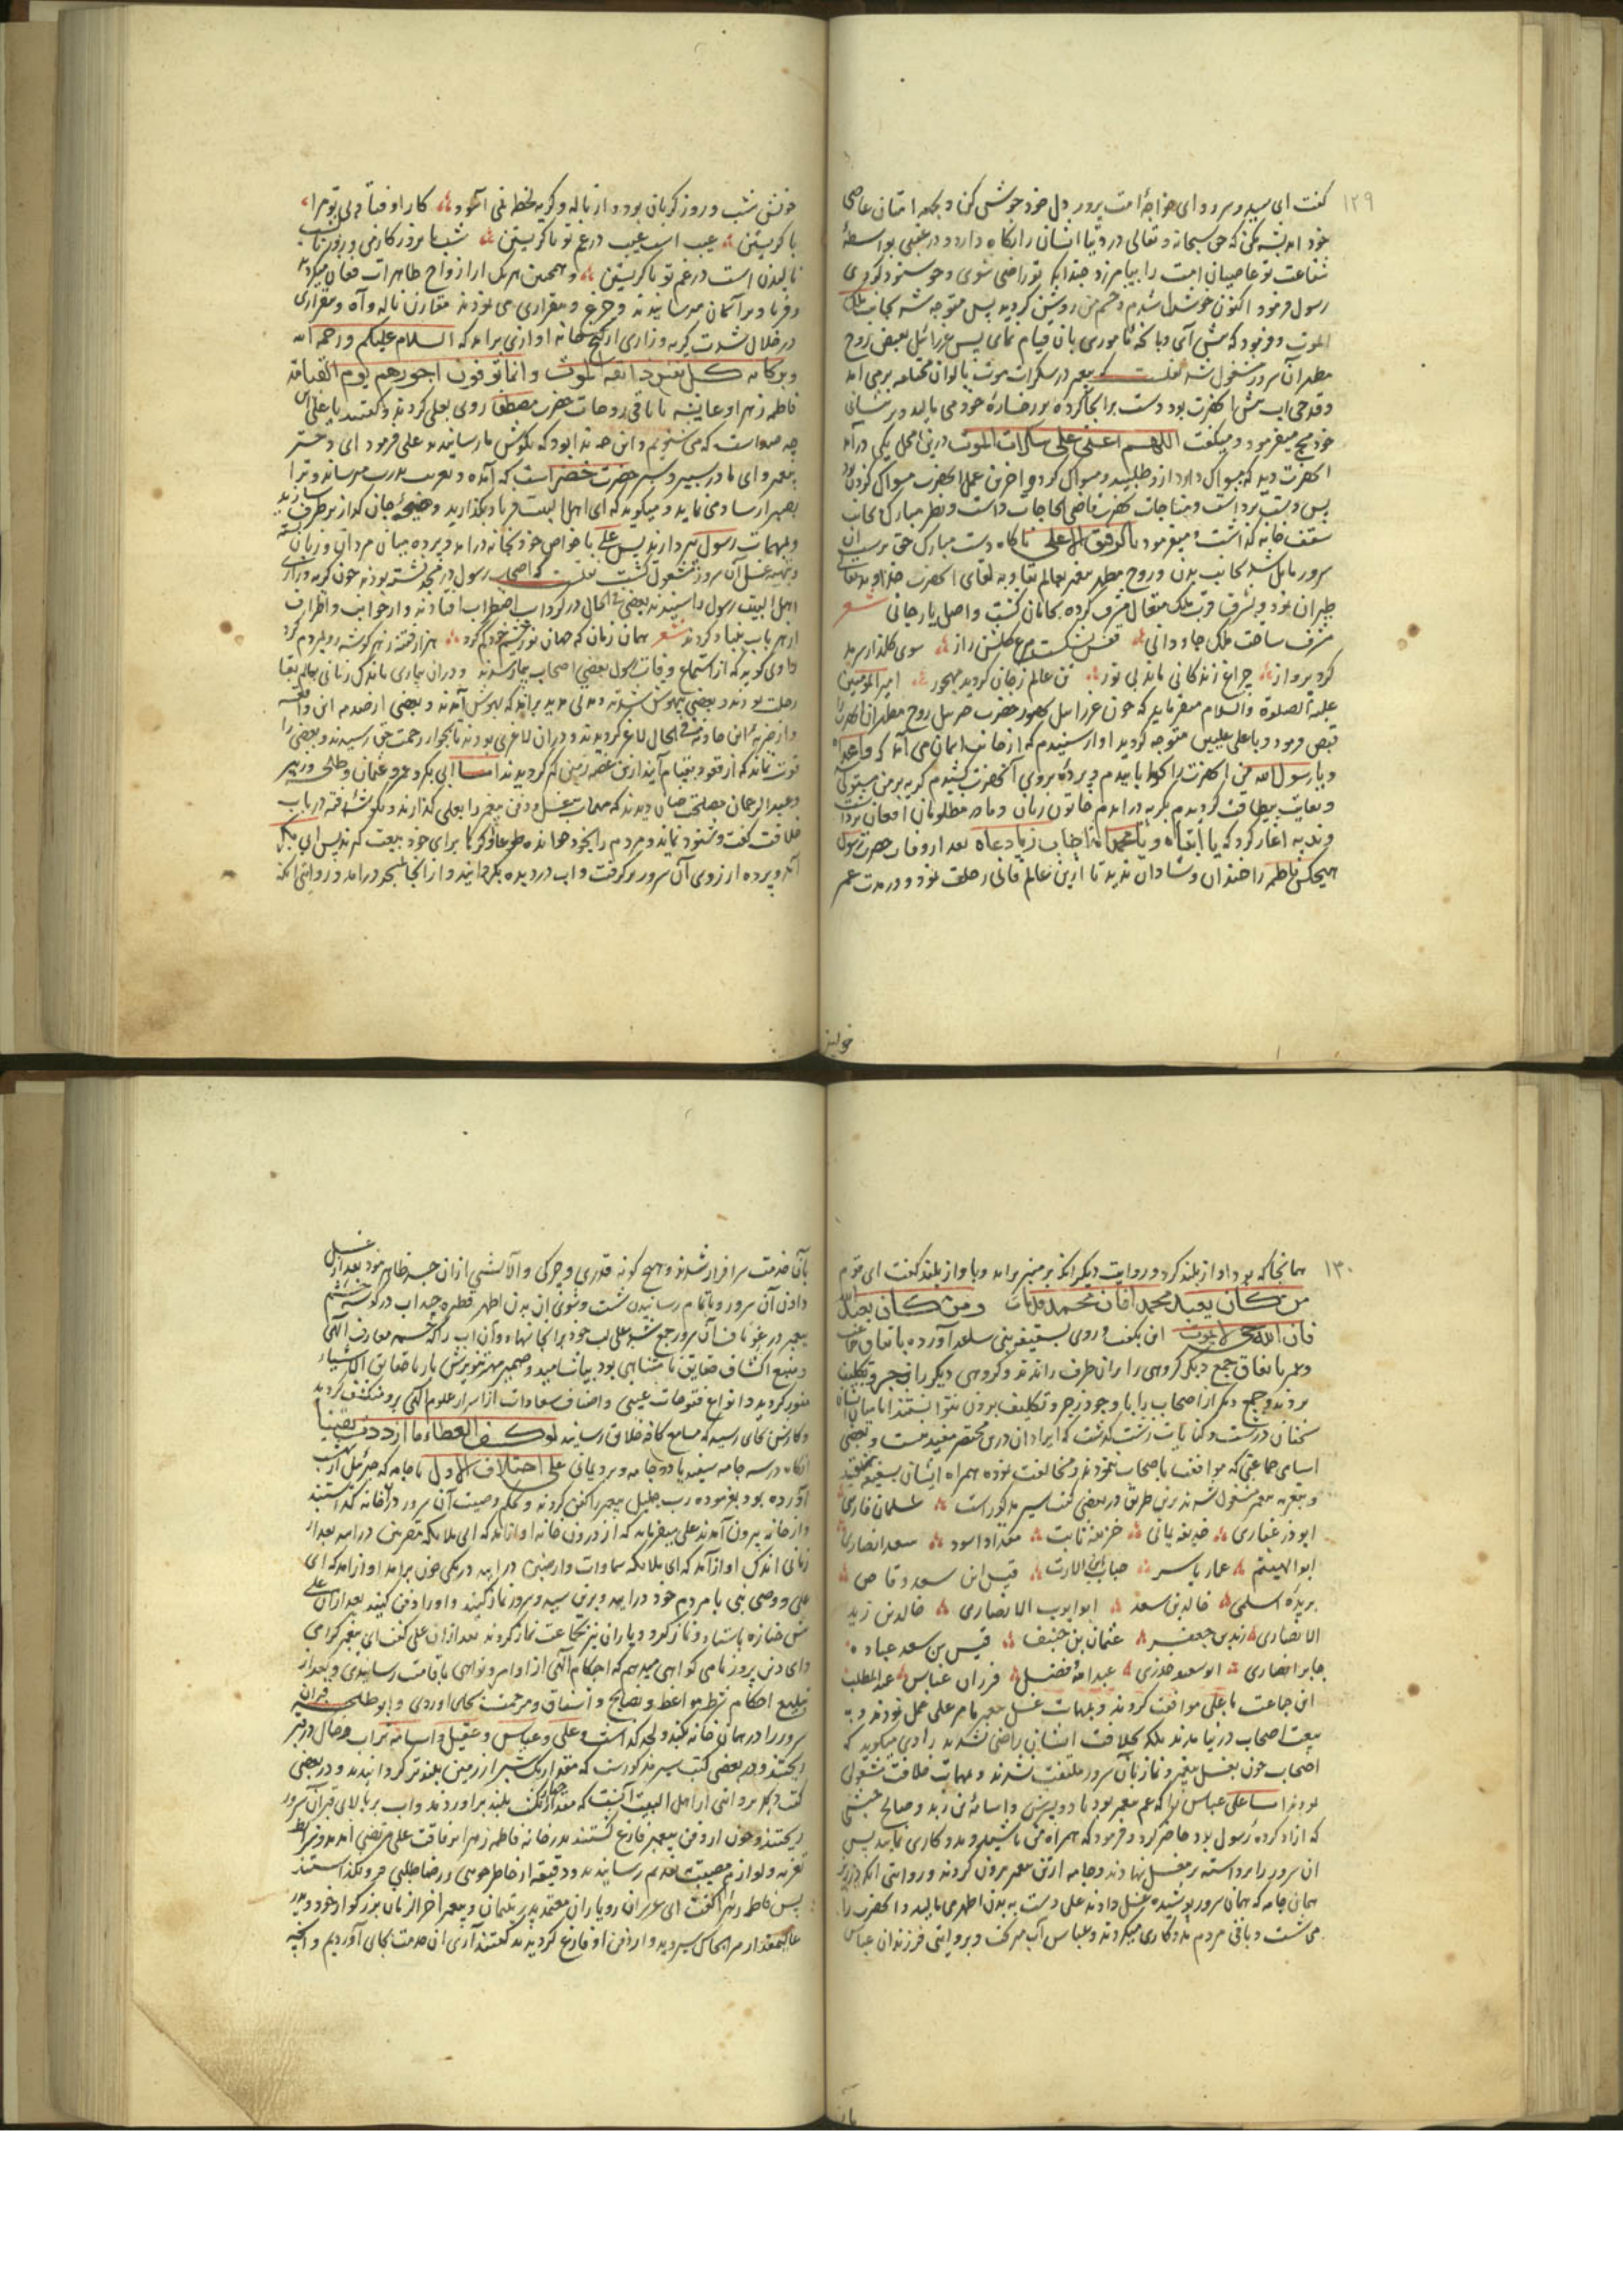 ۱۲۹
گفت ای سید و سرور و ای خواجهٔ امت پرور دل خود خوش کن و بجهة امتان عاصی
خود اندیشه مکن که حق سبحانه و تعالی در دنیا ایشان را نگاه دارد و در عقبی بواسطهٔ
شفاعت تو عاصیان امت را بیامرزد چندانکه تو راضی شوی و خوشنود گردی
رسول فرمود اکنون خوشدل شدم و چشم من روشن گردید پس متوجه شد بجانب ملک
الموت و فرمود که پیش آی و بانچه مأموری بان قیام نمای پس عزرائیل بقبض روح
مطهر آن سرور مشغول شد نقلست که پیغمبر در سکرات موت بالوان مختلفه برمی آمد
و قدحی اب پیش انحضرت بود دست برانجا کرده بر رخسارهٔ خود می مالید و پیشانی
خود مسح میفرمود و میگفت اللهم اعنی علی سکرات الموت درین محل یکی درآمد
انحضرت دید که مسواک دارد ازو طلبید و مسواک کرد و اخرین عمل انحضرت مسواک کردن بود
پس دست برداشت و مناجات بحضرت قاضی الحاجات داشت و نظر مبارک بجانب
سقف خانه گذاشت و میفرمود بالرفیق الاعلی ناگاه دست مبارک حق پرست ان
سرور مایل شد بجانب بدن و روح مطهر پیغمبر بعالم بقا و به لقای انحضرت خداوند تعالی
طیران نمود و بشرف قرب ملک متعال مشرف کرده بجانان گشت و اصل یار جانی شعر
شرف ساخت ملک جاودانی قفس بشکست مرغ گلشن راز سوی گلزار سرمد
کرد پرواز چراغ زندگانی ماند بی نور تن عالم ز جان گردید مهجور امیر المومنین
علیه الصلوة والسلام میفرماید که چون عزرائیل بحضور حضرت جبرئیل روح مطهر ان حضرت را
قبض فرمود و باعلی علیین متوجه گردید اواز شنیدم که از جانب اسمان می آمد که وامحمداه
و یا رسول الله من انحضرت را خوابانیدم و بردهٔ بروی آنحضرت کشیدم گریه بر من مستولی
و بغایت بیطاقت گردیدم بگریه درامدم خاتون زنان و مادر مظلومان افغان برداشت
و ندبه اغاز کرد که یا ابتاه و یا محمداه اجاب ربا دعاه بعد از وفات حضرت رسول
هیچکس فاطمه را خندان و شادان ندید تا ازین عالم فانی رحلت نمود و در مدت عمر
خونین شب و روز گریان بود و از ناله و گریه لحظه نمی آسود کار اوفتاد بی تو مرا
با گریستن عیب است عیب در غم تو ناگریستن شبها مرو ز کار من و روزها شب
نالیدن است در غم تو یا گریستن و همچنین هر یک از ازواج طاهرات فغان میکردند
و فریاد بر آسمان میرسانیدند و جزع و بیقراری می نمودند مقارن ناله و آه و بیقراری
در خلال شدت گریه و زاری از کنج خانه اوازی برامد که السلام علیکم ورحمة الله
وبرکاته کل نفس ذائقة الموت وانما توفون اجورهم یوم القیامة
فاطمه زهرا و عایشه با باقی زوجات حضرت مصطفا روی بعلی کردند و گفتند یا علی این
چه صداست که می شنویم و این چه ندا بود که بگوش ما رسانیدند علی فرمود ای دختر
پیغمبر و ای مادر شبیر و شبر حضرت خضر است که آمده و تعزیت پدرت میرساند و ترا
بصبر ارشاد می نماید و میگوید که ای اهل البیت فریاد بگذارید
و بمهمات رسول بپردازید پس علی با خواص خود بخانه درامد و پرده میان مردان و زنان بسته
و بتهیه غسل آن سرور مشغول گشت نقلست که اصحاب رسول در مسجد نشسته بودند چون گریه و زاری
اهل البیت رسول را شنیدند بعضی فی الحال در گرداب اضطراب افتادند و از جوانب و اطراف
از هر باب بنیاد کردند شعر همان زمان که جهان نور چشم خود گم کرد هزار فتنه ز هر گوشه رو بمردم کرد
راوی گوید که از استماع وفات رسول بعضی اصحاب بیمار شدند و در ان بیماری باندک زمانی بعالم بقا
رحلت نمودند و بعضی بیهوش شدند و مدتی مدید برامد که بهوش آمدند و بعضی از صدمه این واقعه
و از ضربهٔ این حادثه فی الحال لاغر گردیدند و در ان لاغری بودند تا بجوار رحمت حق رسیدند و بعضی را
قوت نماند که از قعود بقیام آیند ازین غصه زمین گیر گردیدند اما ابی بکر و عمر و عثمان و طلحه و زبیر
و عبد الرحمان مصلحت چنان دیدند که مهمات غسل و دفن پیغمبر را بعلی گذارند و بگوشهٔ رفته در باب
خلافت گفت و شنود نمایند و مردم را بخود خوانده طوعا و کرها برای خود بیعت گیرند پس ابی بکر
آمد و پرده از روی آن سرور برگرفت و اب در دیده بگردانید و از انجا بمسجد درامد و روایتی انکه
خونین
۱۳۰
همانجا که بود اواز بلند کرد و روایت دیگر انکه بر منبر برامد و باواز بلند گفت ای قوم
من کان یعبد محمدا فان محمدا قد مات ومن کان یعبد الله
فان الله حی لا یموت این بگفت و روی بسقیفه بنی ساعده آورده باتفاق
و عمر باتفاق جمع دیگر گروهی را بران طرف راندند و گروهی دیگر را بزجر و تکلیف
بردند و جمع دیگر از اصحاب را باوجود زجر و تکلیف بردن نتوانستند اما میان ایشان
سخنان درشت و کنایات زشت گذشت که ایراد ان درین مختصر مفید نیست و بعضی
اسامی جماعتی که موافقت باصحاب ننمودند و مخالفت نموده همراه ایشان بسقیفه نرفتند
و بتعزیه پیغمبر مشغول شدند برین طریق در بعضی کتب سیر مذکور است سلمان فارسی
ابوذر غفاری حذیفه یمانی خزیمه ثابت مقداد اسود سعد انصاری
ابو الهیثم عمار یاسر خباب ابن الارت قیس ابن سعد وقاص
بریده اسلمی خالد بن سعد ابو ایوب الانصاری خالد بن زید
الانصاری زید بن جعفر عثمان بن حنیف قیس بن سعد عباده
جابر انصاری ابو سعید خدری عبد الله فضل فرزندان عباس عبد المطلب
این جماعت با علی موافقت کردند و بمهمات غسل پیغمبر بامر علی عمل نمودند و به
بیعت اصحاب در نیامدند بلکه بخلافت ایشان راضی نشدند راوی میگوید که
اصحاب چون بغسل پیغمبر و نماز بآن سرور ملتفت نشدند و بمهمات خلافت مشغول
بودند اما علی عباس را که عم پیغمبر بود با دو پسرش و اسامة بن زید و صالح حبشی
که ازاد کرده رسول بود حاضر کرد و فرمود که همراه من باشید و مددکاری نمایید پس
ان سرور را برداشته بر مغسل نهادند و جامه از تن پیغمبر برون کردند و روایتی انکه
همان جامه که همان سرور پوشیده غسل دادند علی دست به بدن اطهر می مالید و انحضرت را
می شست و باقی مردم مددکاری میکردند و عباس آب میریخت و بروایتی فرزندان عباس
بآن خدمت سرافراز شدند و هیچ گونه قذری و چرکی و آلایشی از ان جسد ظاهر نبود بعد از غسل
دادن آن سرور و باتمام رسانیدن شست و شوی ان بدن اطهر قطرهٔ چند اب در گوشه چشم
پیغمبر و در غو ناف آن سرور جمع شد علی لب خود بر انجا نهاد و آن اب را که چشمه معارف الهی
و منبع اکتشاف حقایق نامتناهی بود بیاشامید و ضمیر مهر تنویرش بار باحقایق الاشیاء
منور گردید و انواع فتوحات غیبی و اصناف سعادات از اسرار علوم الهی برو منکشف گردید
و کارش بجای رسید که بمسامع کافه خلایق رسانید لو کشف الغطاء ما ازددت یقینا
انگاه در سه جامه سفید یا دو جامه و برد یمانی علی اختلاف الاول با جامه که جبرئیل از بهشت
آورده بود بفرموده رب جلیل پیغمبر را کفن کردند و بحکم وصیت آن سرور در انخانه گذاشتند
و از خانه بیرون آمدند علی میفرماید که از درون خانه اواز امد که ای ملایکه مقربین درایید بعد از
زمانی اندک اواز آمد که ای ملایکه سماوات و ارضین درایید دریکی چون برامد اواز امد که ای
علی و وصی نبی با مردم خود درایید و برین سید و سرور نماز کنید و او را دفن کنید بعد از ان علی
پیش جنازه باستاد و نماز کرد و یاران نیز بجماعت نماز گردند بعد از ان علی گفت ای پیغمبر گرامی
و ای دین پرور نامی گواهی میدهم که احکام الهی از اوامر و نواهی باقامت رسانیدی و بعد از
تبلیغ احکام شرط مواعظ و نصایح و اشفاق و مرحمت بجای اوردی و ابو طلحه قبر ان
سرور را در همان خانه بکند و لحد گذاشت و علی و عباس و عقیل و اسامه تراب در حال در قبر
ریختند و در بعضی کتب سیر مذکورست که مقدار یک شبر از زمین بلندتر گردانیدند و در بعضی
کتب دیگر بروایتی از اهل البیت انست که مقدار چهار انگشت بلند براوردند و اب بر بالای قبر آن سرور
ریختند و چون از دفن پیغمبر فارغ گشتند بدر خانه فاطمه زهرا برفاقت علی مرتضی امدند و شرایط
تعزیه و لوازم مصیبت بتقدیم رسانیدند و دقیقه از خاطر جوئی و رضا طلبی فرو نگذاشتند
پس فاطمه زهرا گفت ای عزیزان و یاران معتمد پدر یتیمان و پیغمبر اخر الزمان بزرگوار خود و پدر
عالیمقدار مرا بخاک سپردید و از دفن او فارغ گردیدید گفتند آری ان خدمت بجای آوردیم و انچه